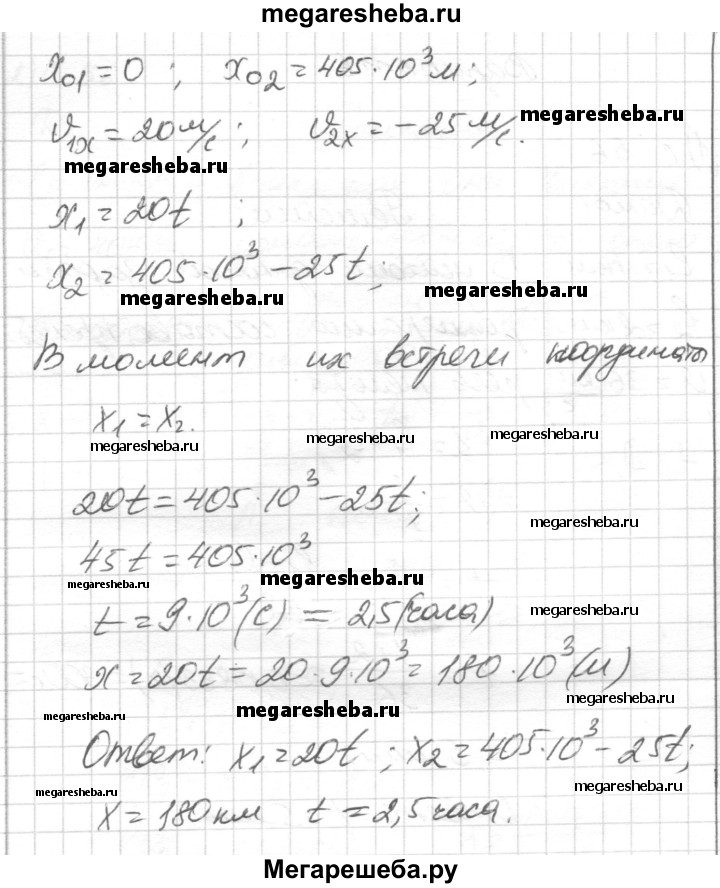 megaresheba.ru
x₀₁ = 0 ; x₀₂ = 405·10³ м;
megaresheba.ru
v₁ₓ = 20 м/с ; v₂ₓ = -25 м/с.
megaresheba.ru
x₁ = 20t ;
x₂ = 405·10³ - 25t;
megaresheba.ru megaresheba.ru
В момент их встречи координаты
x₁ = x₂.
megaresheba.ru megaresheba.ru megaresheba.ru
20t = 405·10³ - 25t;
megaresheba.ru
45t = 405·10³
megaresheba.ru megaresheba.ru
t = 9·10³ (с) = 2,5 (часа)
megaresheba.ru
x = 20t = 20·9·10³ = 180·10³ (м)
megaresheba.ru megaresheba.ru megaresheba.ru
Ответ: x₁ = 20t ; x₂ = 405·10³ - 25t;
megaresheba.ru megaresheba.ru
x = 180 км t = 2,5 часа.
Мегарешеба.ру